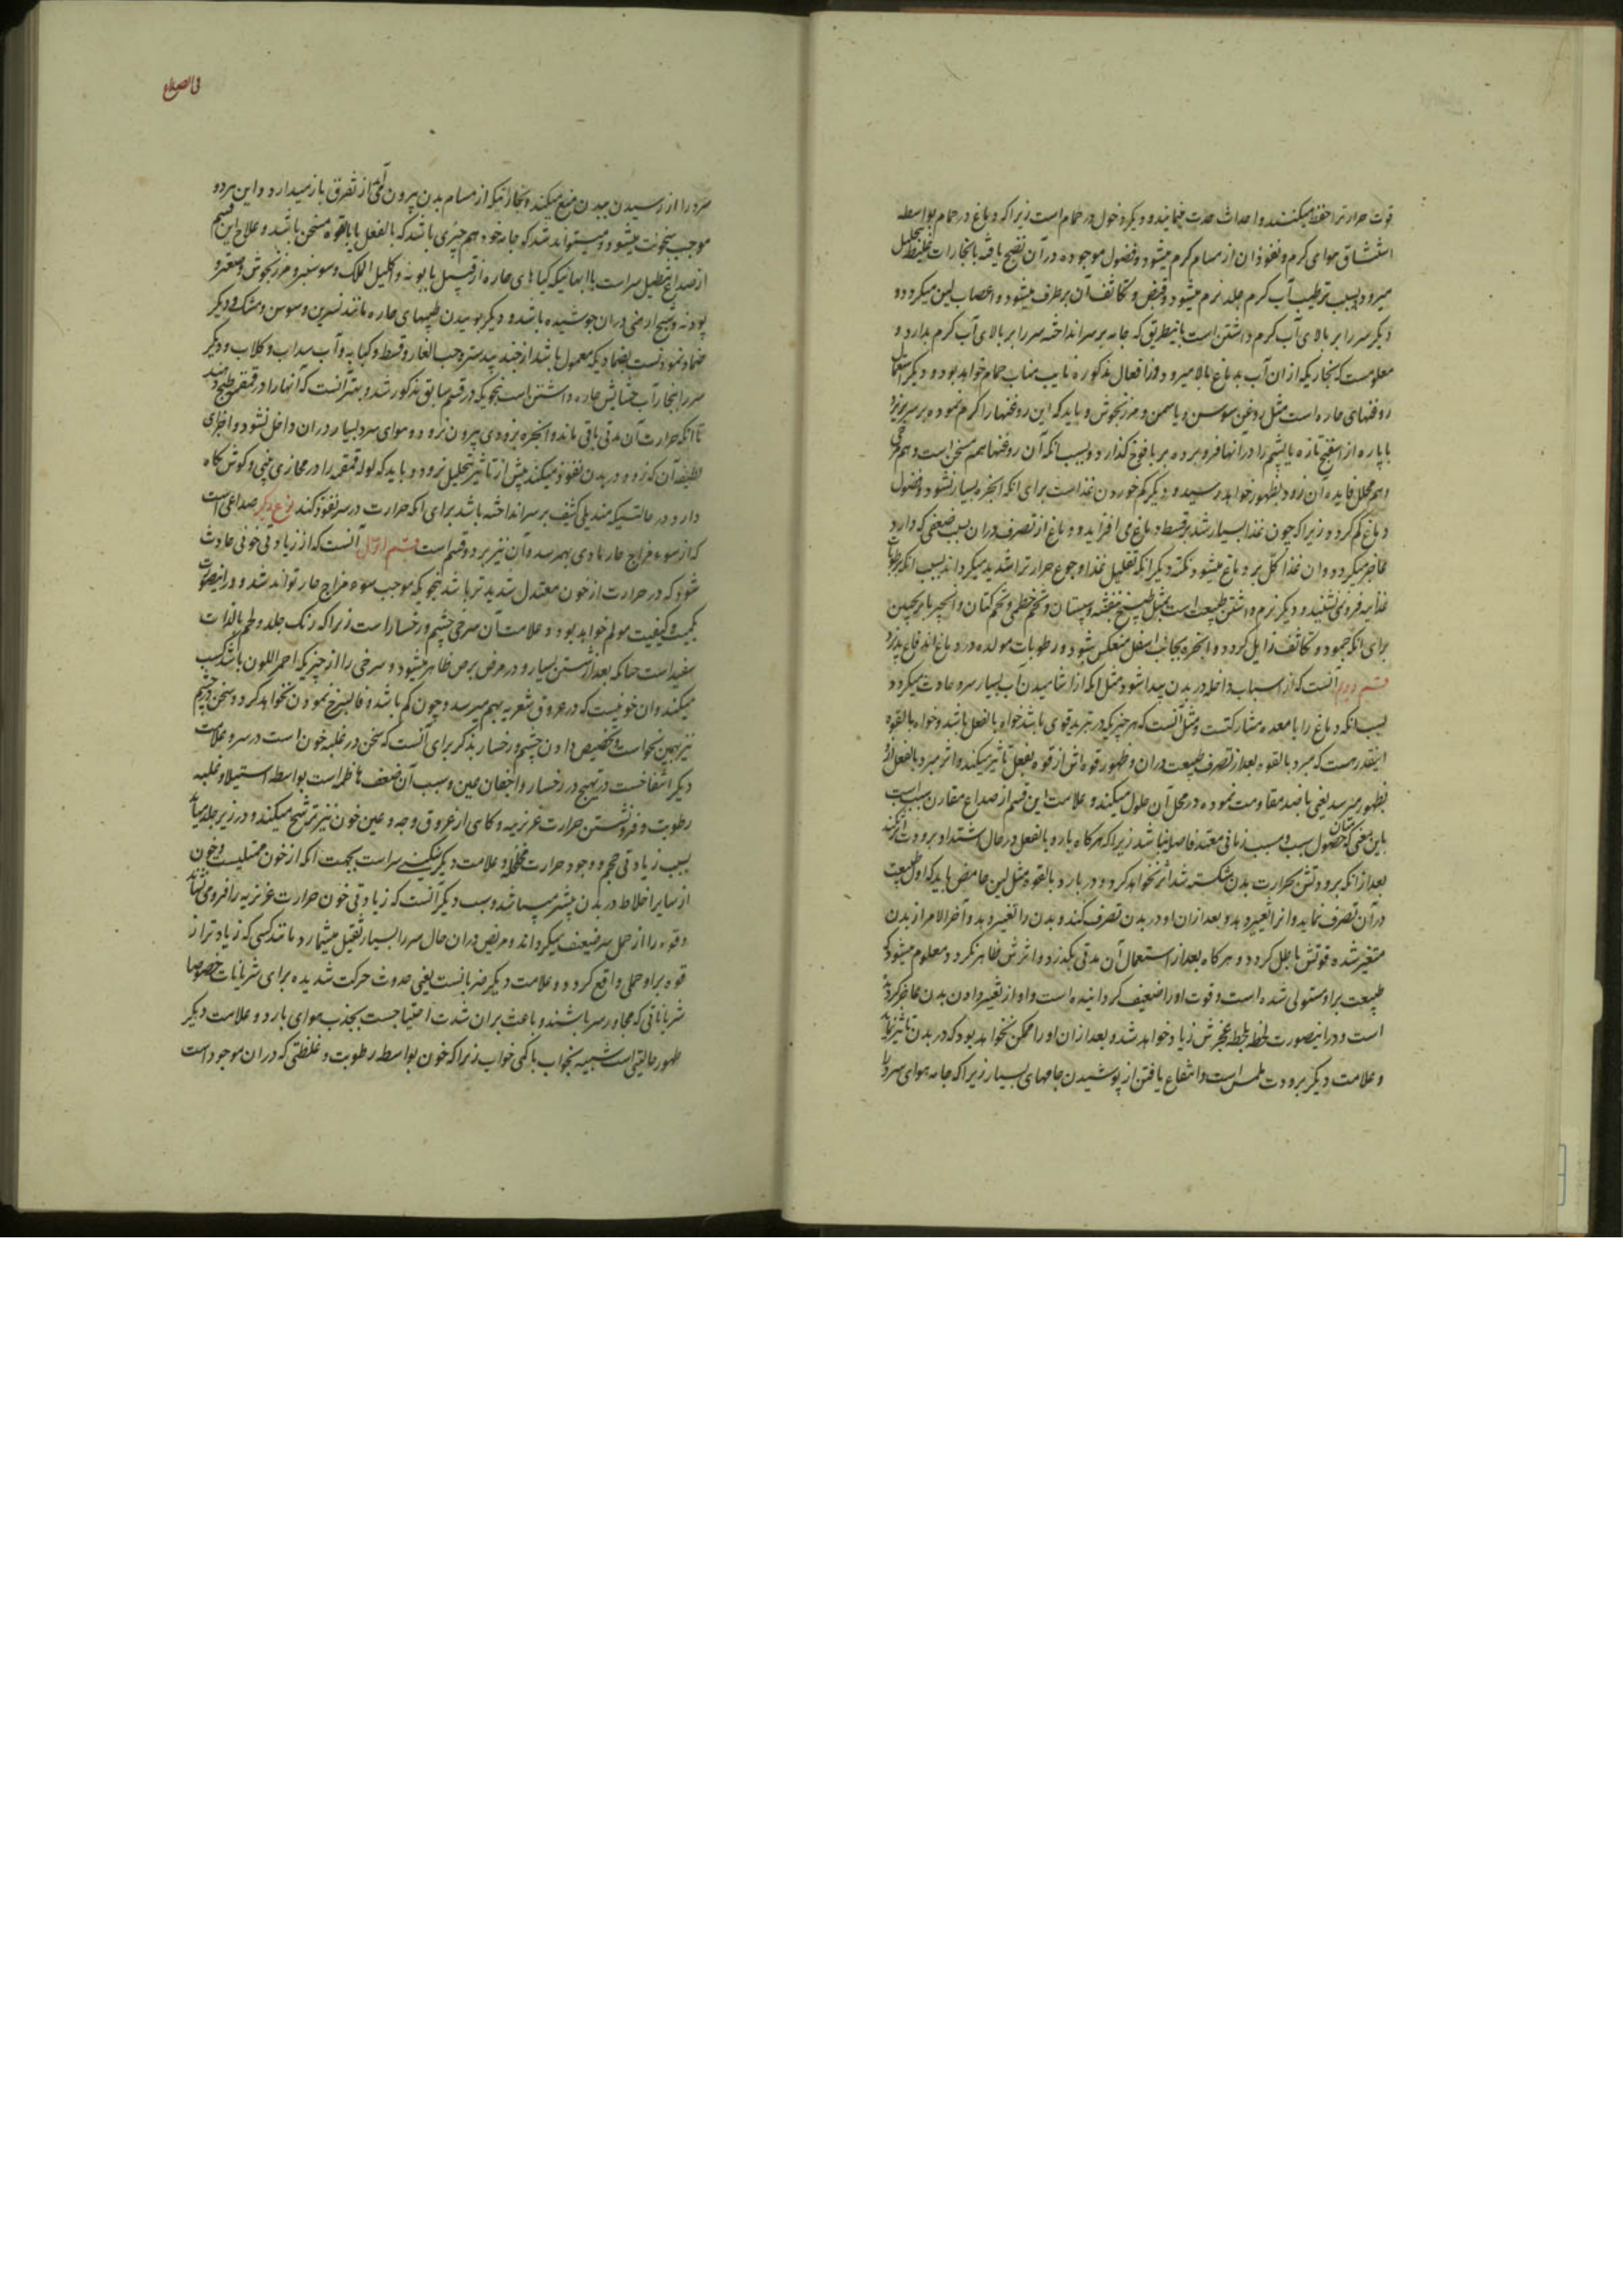 قوت حرارترا حفظ میکنند و احداث حدت مینمایند و دیکر دخول در حمام است زیرا که دماغ در حمام بواسطه
استنشاق هوای کرم و نفوذ ان از مسام کرم میشود و فضول موجوده در آن نضج یافته با بخارات غلیظ تحلیل
میرود و بسبب ترطیب آب کرم جلد نرم میشود و قبض و تکاثف ان برطرف میشود و اعصاب لین میکردد و
دیکر سر را بر بالای آب کرم داشتن است باینطریق که جامه بر سر انداخته سر را بر بالای آب کرم بدارد و
معلومست که بخاریکه از ان آب بدماغ بالا میرود در افعال مذکوره نایب مناب حمام خواهد بود و دیکر استعمال
روغنهای حاره است مثل روغن سوسن و یاسمن و مرزنجوش و باید که این روغنها را کرم نموده بر سر بریزد
یا پاره از اسفنج تازه یا پشم را در آنها فرو برده بر یافوخ کذارد و بسبب انکه آن روغنها هم مسخن است و هم مرخی
و هم محلل فایده ان زود بظهور خواهد رسید و دیکر کم خوردن غذاست برای انکه ابخره بسیار نشود و فضول
دماغ کم کردد زیرا که چون غذا بسیار شد بر قسط دماغ می افزاید و دماغ از تصرف در ان بسبب ضعفی که دارد
عاجز میکردد و ان غذا کل بر دماغ میشود نکته دیکر انکه تقلیل غذا و جوع حرارترا شدید میکرداند بسبب انکه برطوبات
غذاییه فرو نمی نشیند و دیکر نرم داشتن طبیعت است بمثل طبیخ بنفشه و سپستان و تخم خطمی و تخم کتان و انجیر با ترنجبین
برای انکه جمود و تکاثف زایل کردد و ابخره بجانب اسفل منعکس شود و رطوبات مولده در دماغ اندفاع پذیرد
قسم دوم آنست که از اسباب داخله در بدن پیدا شود مثل انکه از اشامیدن آب بسیار سرد حادث میکردد
بسبب انکه دماغ را با معده مشارکتست و مثل آنست که هر چیزیکه در تبرید قوی باشد خواه بالفعل باشد و خواه بالقوه
اینقدر هست که مبرد بالقوه بعد از تصرف طبیعت در ان و ظهور قوه اش از قوه بفعل تاثیر میکند و اثر مبرد بالفعل زود
بظهور میرسد یعنی با ضد مقاومت نموده در محل آن حلول میکند و علامت این قسم از صداع مقارن سبب است
باین معنی که میان حصول سبب و مسبب زمانی معتد فاصله نباشد زیرا که هر کاه بارد بالفعل در حال اشتداد برودت اثر نکند
بعد از انکه برودتش بحرارت بدن شکسته شد اثر نخواهد کرد و در بارد بالقوه مثل لبن حامض باید که اول طبیعت
در آن تصرف نماید و انرا تغییر دهد و بعد از ان او در بدن تصرف کند و بدن را تغییر دهد و آخر الامر از بدن
متغیر شده قوتش باطل کردد و هر کاه بعد از استعمال آن مدتی بکذرد و اثرش ظاهر نکردد معلوم میشود که
طبیعت بر او مستولی شده است و قوت او را ضعیف کردانیده است و او از تغییر دادن بدن عاجز کردیده
است و در اینصورت لحظه بلحظه عجزش زیاد خواهد شد و بعد از ان او را ممکن نخواهد بود که در بدن تاثیر نماید
و علامت دیکر برودت ملمس است و انتفاع یافتن از پوشیدن جامهای بسیار زیرا که جامه هوای سرد را
فی الصداع
سرد را از رسیدن ببدن منع میکند و بخاراتیکه از مسام بدن بیرون می آید از تفرق باز میدارد و این هر دو
موجب سخونت میشود و میتواند شد که جامه خود هم چیزی باشد که بالفعل یا بالقوه مسخن باشد و علاج این قسم
از صداع تنطیل سر است با ابهائیکه کیاهای حاره از قبیل بابونه و اکلیل الملک و سوسنبر و مرزنجوش و صعتر و
پودنه و شیح ارمنی در ان جوشیده باشند و دیکر بوئیدن طیبهای حاره مانند نسرین و سوسن و مشک و دیکر
ضماد نمودنست بضمادیکه معمول باشد از جند بیدستر و حب الغار و قسط و کبابه و آب سداب و کلاب و دیکر
سر را ببخار آب حشایش حاره داشتن است بنحویکه در قسم سابق مذکور شد و بهتر آنست که آنها را در قمقمه طبخ دهند
تا انکه حرارت آن مدتی باقی ماند و ابخره بزودی بیرون نرود و هوای سرد بسیار در ان داخل نشود و اجزای
لطیفه آن که زود در بدن نفوذ میکند پیش از تاثیر تحلیل نرود و باید که لوله قمقمه را در مجاری بینی و کوش نکاه
دارد در حالتیکه مندیلی کثیف بر سر انداخته باشد برای انکه حرارت در سر نفوذ کند نوع دیکر صداعی است
که از سوء مزاج حار مادی بهم رسد و آن نیز بر دو قسم است قسم اول آنست که از زیادتی خونی حادث
شود که در حرارت از خون معتدل شدیدتر باشد بنحویکه موجب سوء مزاج حار تواند شد و در اینصورت
بکمیت و کیفیت مولم خواهد بود و علامت آن سرخی چشم و رخسار است زیرا که رنک جلد و لحم بالذات
سفید است چنانکه بعد از شستن بسیار و در مرض برص ظاهر میشود و سرخی را از چیزیکه احمر اللون باشد کسب
میکند و ان خونیست که در عروق شعریه بهم میرسد و چون کم باشد و غالب سرخ نمودن نخواهد کرد و سخن در چشم
نیز بهمین نحو است و تخصیص دادن چشم و رخسار بذکر برای آنست که سخن در غلبه خون است در سر و علامت
دیکر انتفاخست و تهیج در رخسار و اجفان عین و سبب آن ضعف هاضمه است بواسطه استیلا و غلبه
رطوبت و فرو نشستن حرارت غریزیه و کاهی از عروق وجه و عین خون نیز ترشح میکند و در زیر جلد میماند
بسبب زیادتی حجم و وجود حرارت مخلخله و علامت دیکر سنکینی سر است بجهت انکه از خون ممتلیست و خون
از سایر اخلاط در بدن بیشتر میباشد و سبب دیکر آنست که زیادتی خون حرارت غریزیه را فرو می نشاند
و قوه را از حمل سر ضعیف میکرداند و مریض در ان حال سر را بسیار ثقیل میشمارد مانند کسی که زیادتر از
قوه بر او حملی واقع کردد و علامت دیکر ضربانست یعنی حدوث حرکت شدیده برای شریانات خصوصا
شریاناتی که مجاور سر باشند و باعث بر ان شدت احتیاجست بجذب هوای بارد و علامت دیکر
ظهور حالتی است شبیه بخواب یا کمی خواب زیرا که خون بواسطه رطوبت و غلظتی که در ان موجود است